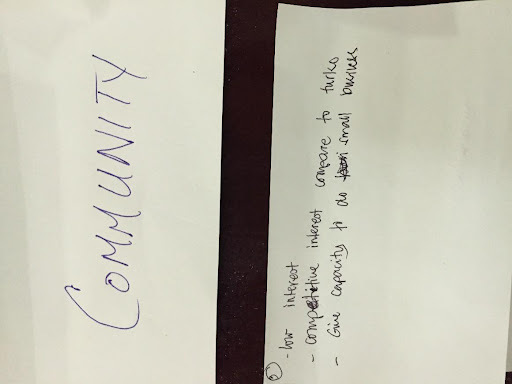 COMMUNITY
①
- low interest
- competitive interest compare to turks
- Give capacity to do small business